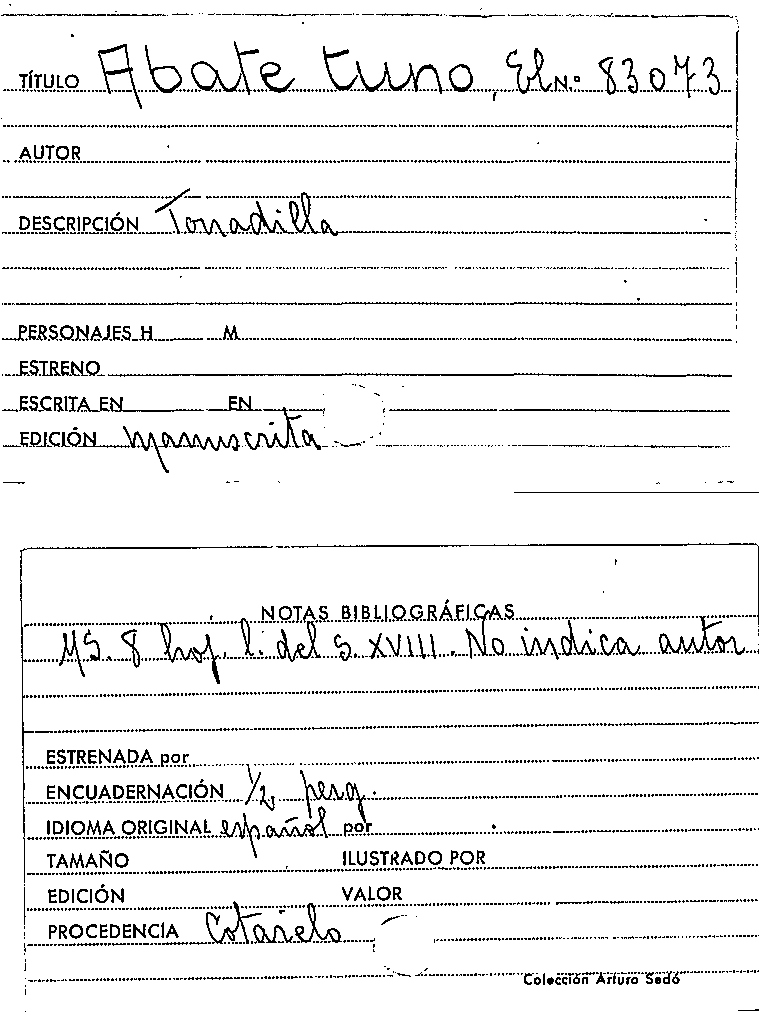 TÍTULO Abate tuno, El N.º 83073
AUTOR
DESCRIPCIÓN Tonadilla
PERSONAJES H M
ESTRENO
ESCRITA EN EN
EDICIÓN manuscrita
NOTAS BIBLIOGRÁFICAS
MS. 8 hoj. l. del S. XVIII. No indica autor
ESTRENADA por
ENCUADERNACIÓN 1/2 perg.
IDIOMA ORIGINAL español por
TAMAÑO ILUSTRADO POR
EDICIÓN VALOR
PROCEDENCIA Cotarelo
Colección Arturo Sedó